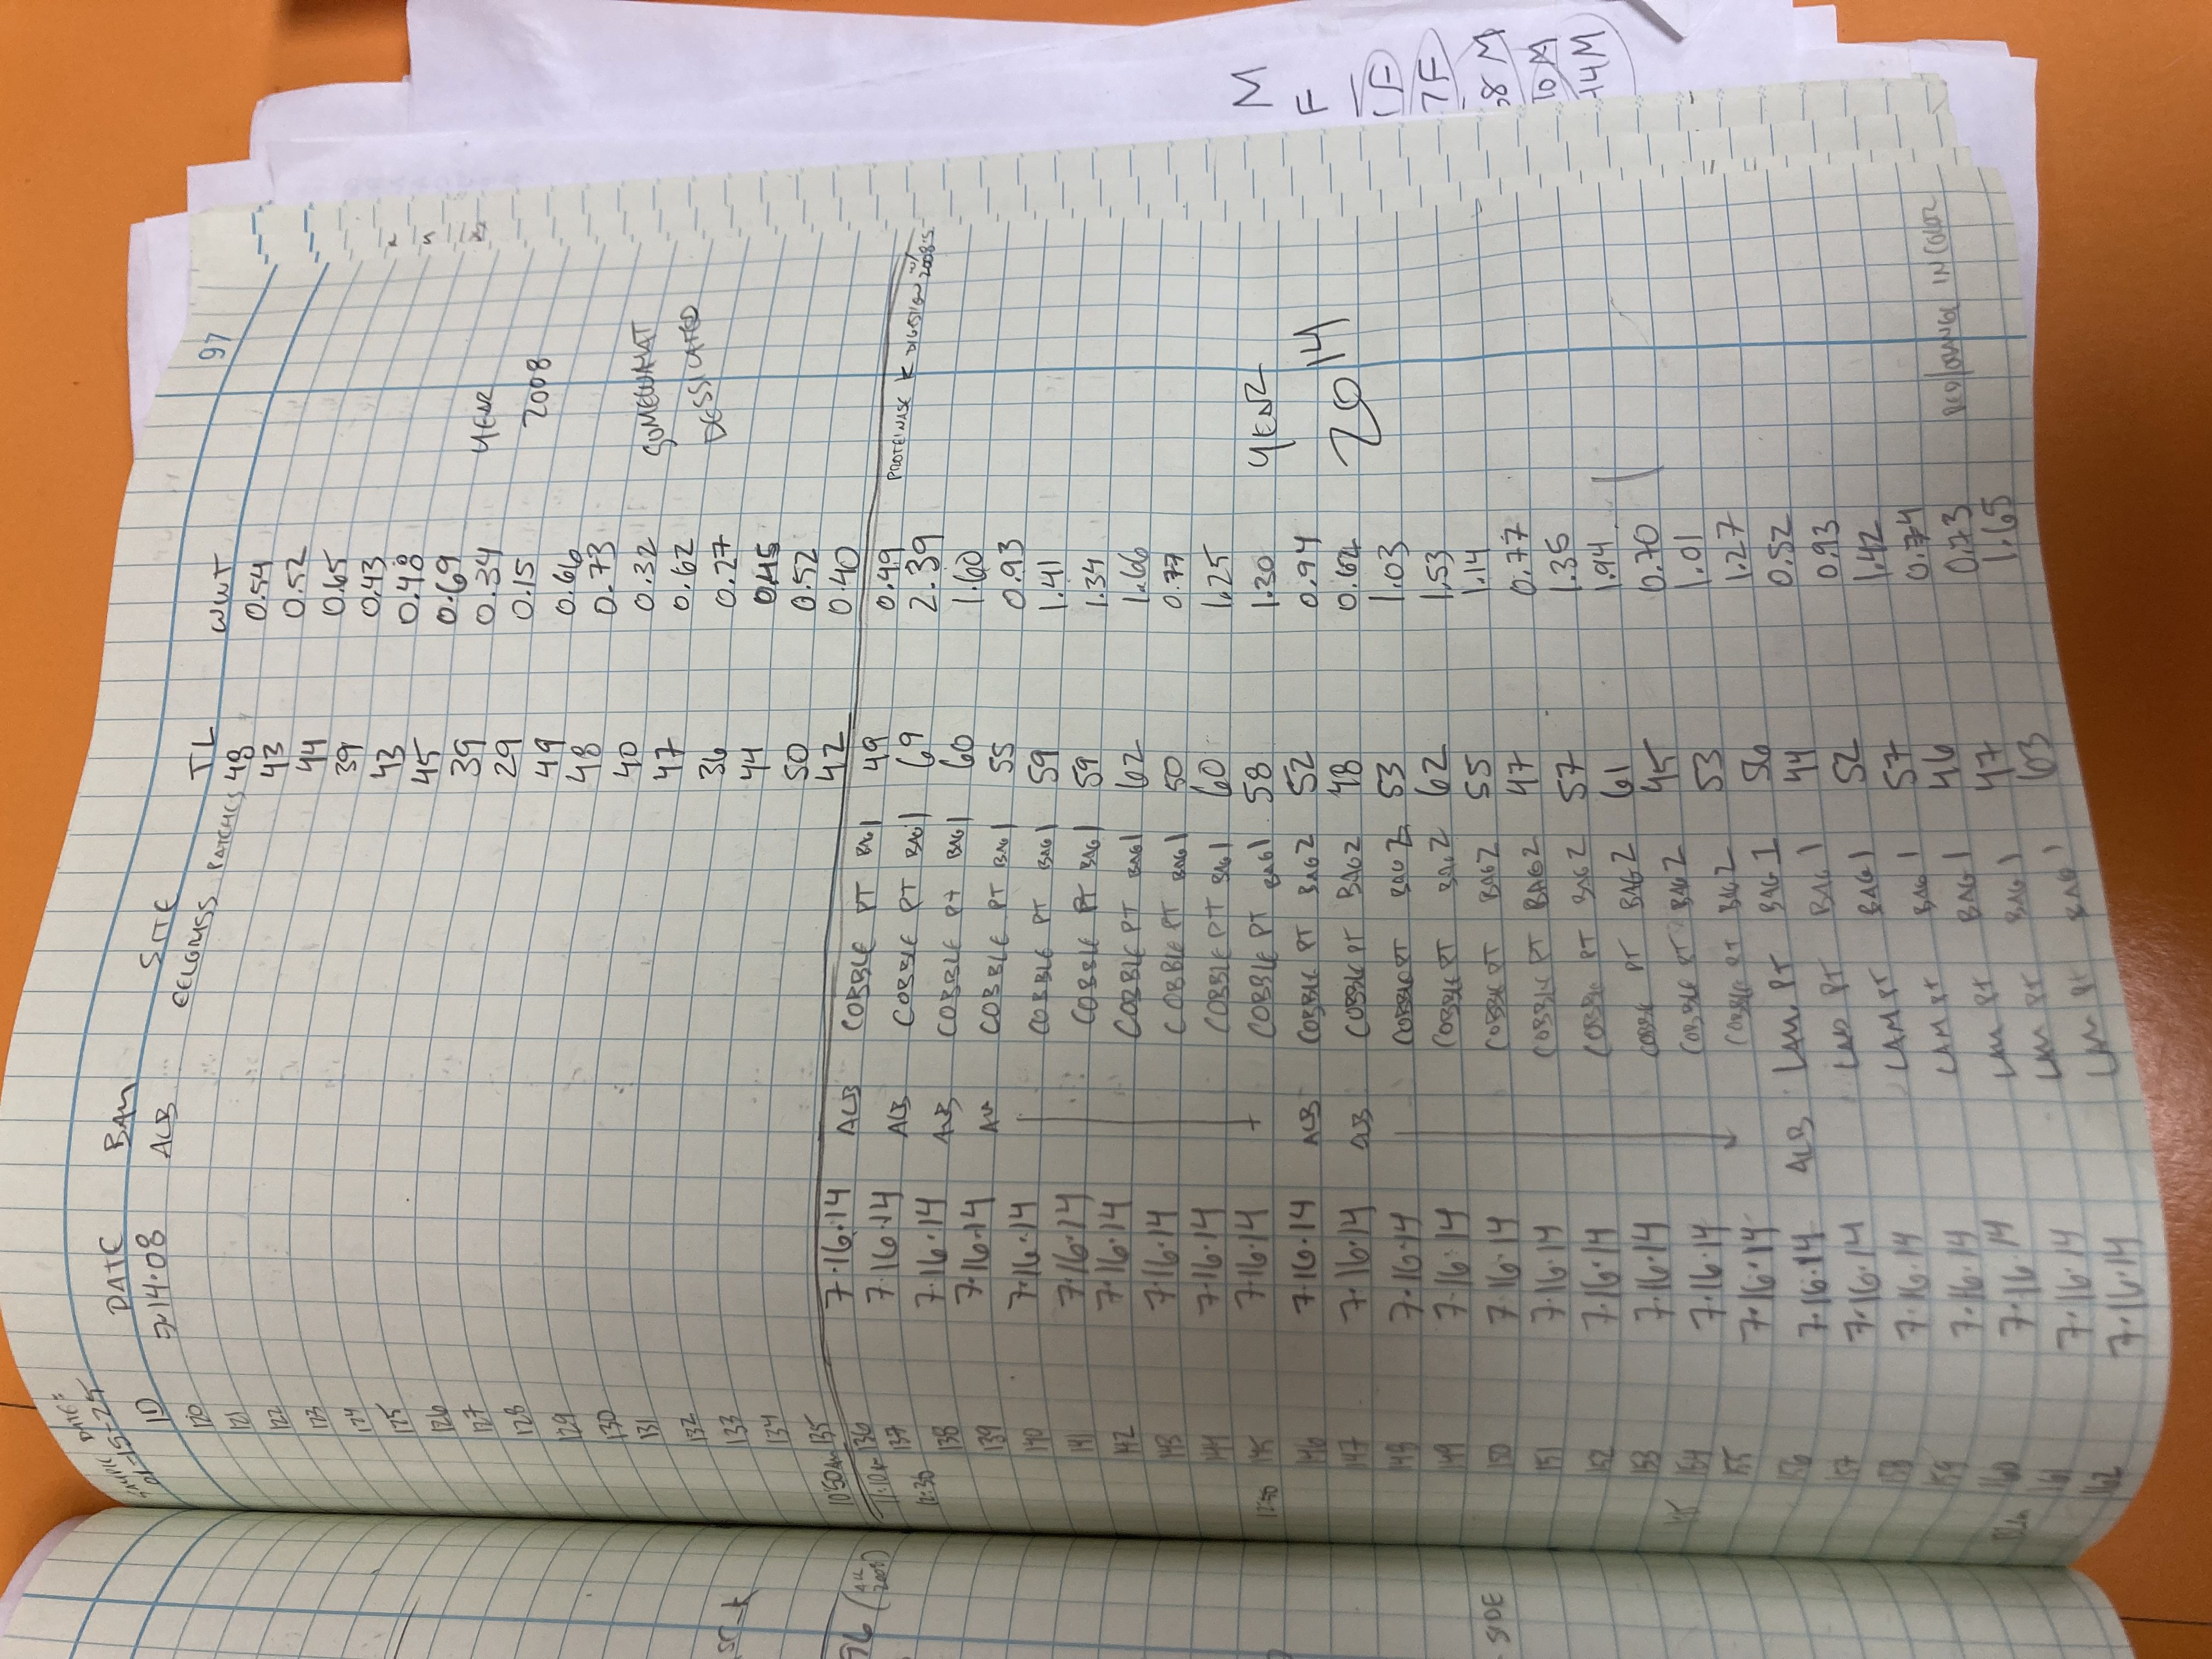 SAMPLE DATE=
01-15-25
97
ID DATE BAY SITE TL WWT
120 7-14-08 ALB EELGRASS PATCHES 48 0.54
121 43 0.52
122 44 0.65
123 39 0.43
124 43 0.48
125 45 0.69
126 39 0.34
127 29 0.15 YEAR
128 49 0.66 2008
129 48 0.73
130 40 0.32 SOMEWHAT
131 47 0.62 DESSICATED
132 36 0.27
133 44 0.45
134 50 0.52
10:50am 135 42 0.40
11:10am 136 7.16.14 ALB COBBLE PT BAG1 49 0.49 PROTEINASE K DIGESTION w/ 2008's
12:30 137 7.16.14 ALB COBBLE PT BAG1 69 2.39
138 7.16.14 ALB COBBLE PT BAG1 60 1.60
139 7.16.14 COBBLE PT BAG1 55 0.93
140 7.16.14 COBBLE PT BAG1 59 1.41
141 7.16.14 COBBLE PT BAG1 59 1.34
142 7.16.14 COBBLE PT BAG1 62 1.66
143 7.16.14 COBBLE PT BAG1 50 0.77
144 7.16.14 COBBLE PT BAG1 60 1.25
145 7.16.14 COBBLE PT BAG1 58 1.30 YEAR
146 7.16.14 ALB COBBLE PT BAG2 52 0.94 2014
147 7.16.14 ALB COBBLE PT BAG2 48 0.62
148 7.16.14 COBBLE PT BAG2 53 1.03
149 7.16.14 COBBLE PT BAG2 62 1.53
150 7.16.14 COBBLE PT BAG2 55 1.14
151 7.16.14 COBBLE PT BAG2 47 0.77
152 7.16.14 COBBLE PT BAG2 57 1.35
153 7.16.14 COBBLE PT BAG2 61 1.94
154 7.16.14 COBBLE PT BAG2 45 0.70
155 7.16.14 COBBLE PT BAG2 53 1.01
156 7.16.14 ALB LAM PT BAG1 56 1.27
157 7.16.14 LAM PT BAG1 44 0.52
158 7.16.14 LAM PT BAG1 52 0.93
159 7.16.14 LAM PT BAG1 57 1.42
160 7.16.14 LAM PT BAG1 46 0.74
161 7.16.14 LAM PT BAG1 47 0.73 RED/ORANGE IN COLOR
162 7.16.14 LAM PT BAG1 63 1.65
96 (ALL 2008)
SIDE
M
F
F
7F
M
M
14M